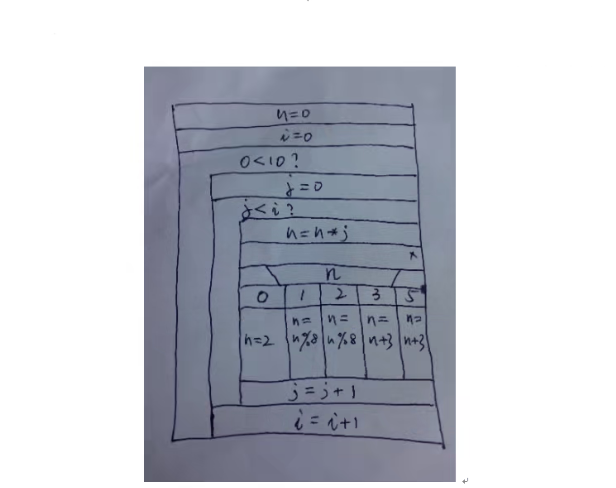 n=0
i=0
0<10?
j=0
j<i?
n=n*j
*
n
0 1 2 3 5
n=2 n=n%8 n=n%8 n=n+3 n=n+3
j=j+1
i=i+1